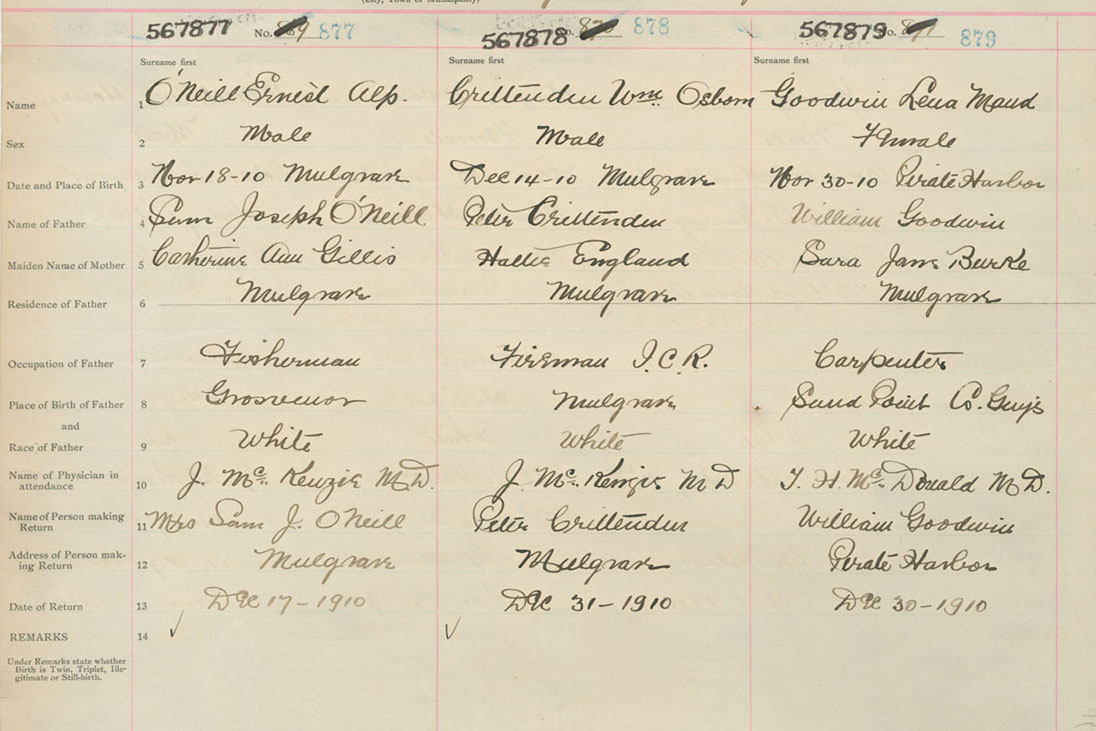 (City, Town or Municipality)
567877 No. 877
567878 No. 878
567879 No. 879
Surname first Surname first Surname first
Name 1 O'Neill Ernest Alp. Crittenden Wm. Osborn Goodwin Lena Maud
Sex 2 Male Male Female
Date and Place of Birth 3 Nov 18-10 Mulgrave Dec 14-10 Mulgrave Nov 30-10 Pirate Harbor
Name of Father 4 Sam Joseph O'Neill Peter Crittenden William Goodwin
Maiden Name of Mother 5 Catherine Ann Gillis Hattie England Sara Jane Burke
Residence of Father 6 Mulgrave Mulgrave Mulgrave
Occupation of Father 7 Fisherman Fireman I.C.R. Carpenter
Place of Birth of Father 8 Grosvenor Mulgrave Sand Point Co. Guys
and
Race of Father 9 White White White
Name of Physician in
attendance 10 J. Mc. Kenzie M.D. J. Mc. Kenzie M D Mc. Donald M D.
Name of Person making
Return 11 Mrs Sam J. O'Neill Peter Crittenden William Goodwin
Address of Person mak-
ing Return 12 Mulgrave Mulgrave Pirate Harbor
Date of Return 13 Dec 17-1910 Dec 31-1910 Dec 30-1910
REMARKS 14
Under Remarks state whether
Birth is Twin, Triplet, Ille-
gitimate or Still-birth.